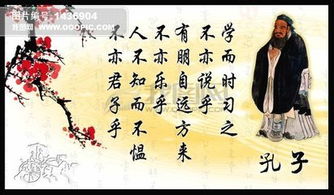 学而时习之
不亦说乎
有朋自远方来
不亦乐乎
人不知而不愠
不亦君子乎
孔子
编号:1436904